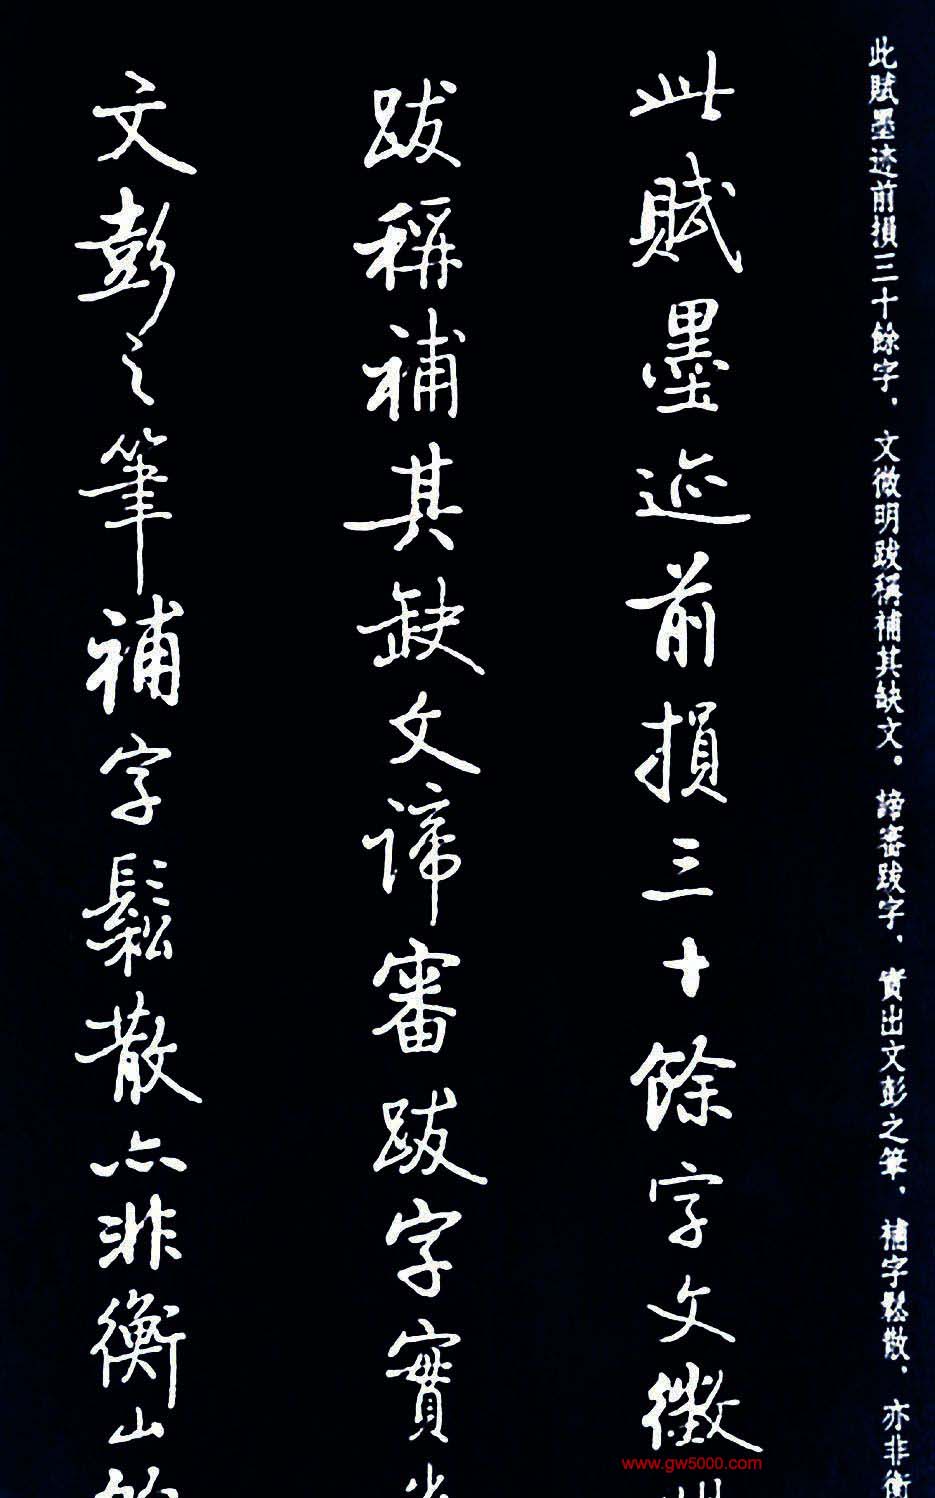 此賦墨迹前損三十餘字，文徵明跋稱補其缺文。諦審跋字，實出文彭之筆，補字鬆散，亦非衡
此賦墨迹前損三十餘字文徵
跋稱補其缺文諦審跋字實
文彭之筆補字鬆散亦非衡山
www.gw5000.com